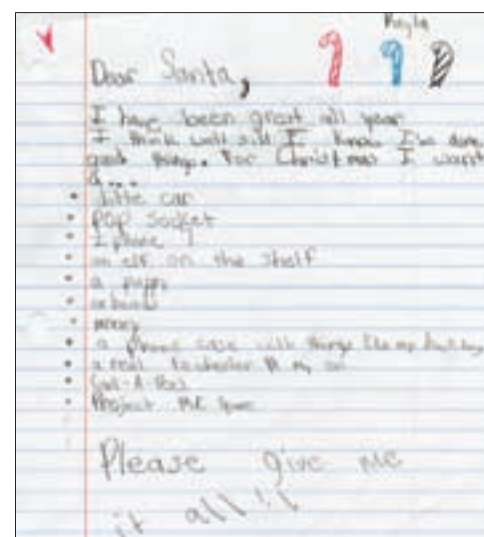 Kayla
Dear Santa,
I have been great all year
I think well still I know I've done
good things. For Christmas I want
a...
little car
POP Socket
I phone 7
an elf on the shelf
a puppy
money
a phone case with things like my
a real
Project Mc
Please give me
it all!!